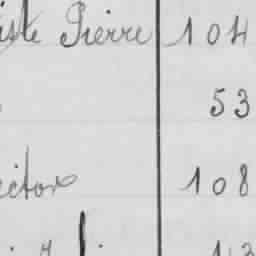 iste Pierre 104
53
ictor 108
13